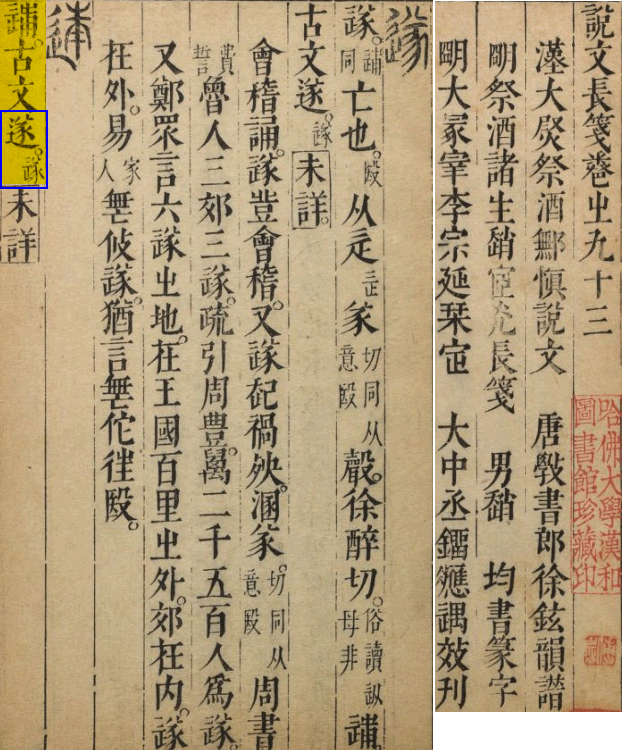 說文長箋卷㞢九十三
漢大尉祭酒鄦愼說文 唐斆書郎徐鉉韻譜
朙祭酒諸生宧光長箋 男均書篆字
朙大冢宰李宗延栞㝎 大中丞鐂遇效刊
哈佛大學漢和
圖書館珍藏印
遂
遂。誧同亡也。殹从辵㒸切同从意殹聲。徐醉切。俗讀㕥母非誧
古文遂。遂未詳。
會稽誦。遂豈會稽。又遂祀禍殃。溷㒸。切同从意殹周書
費誓魯人三郊三遂。疏引周豊。萬二千五百人爲遂。
又鄭眾言六遂㞢地。在王國百里㞢外。郊在内。遂
在外。易家人無攸遂。猶言無佗徃殹。
誧。古文遂。遂未詳